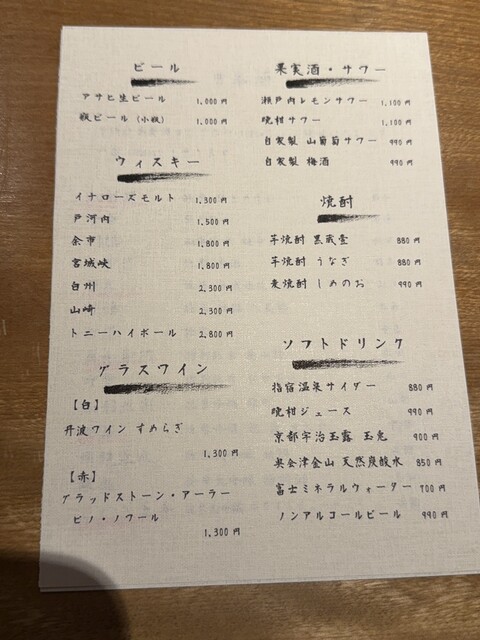 ビール
アサヒ生ビール 1,000円
瓶ビール（小瓶） 1,000円
ウィスキー
イチローズモルト 1,300円
戸河内 1,500円
余市 1,800円
宮城峡 1,800円
白州 2,300円
山崎 2,300円
トニーハイボール 2,800円
グラスワイン
【白】
丹波ワイン すめらぎ
1,300円
【赤】
グラッドストーン・アーラー
ピノ・ノワール
1,300円
果実酒・サワー
瀬戸内レモンサワー 1,100円
晩柑サワー 1,100円
自家製 山葡萄サワー 990円
自家製 梅酒 990円
焼酎
芋焼酎 黒甕壺 880円
芋焼酎 うなぎ 880円
麦焼酎 しめのお 990円
ソフトドリンク
指宿温泉サイダー 880円
晩柑ジュース 990円
京都宇治玉露 玉兎 900円
奥会津金山 天然炭酸水 850円
富士ミネラルウォーター 700円
ノンアルコールビール 990円